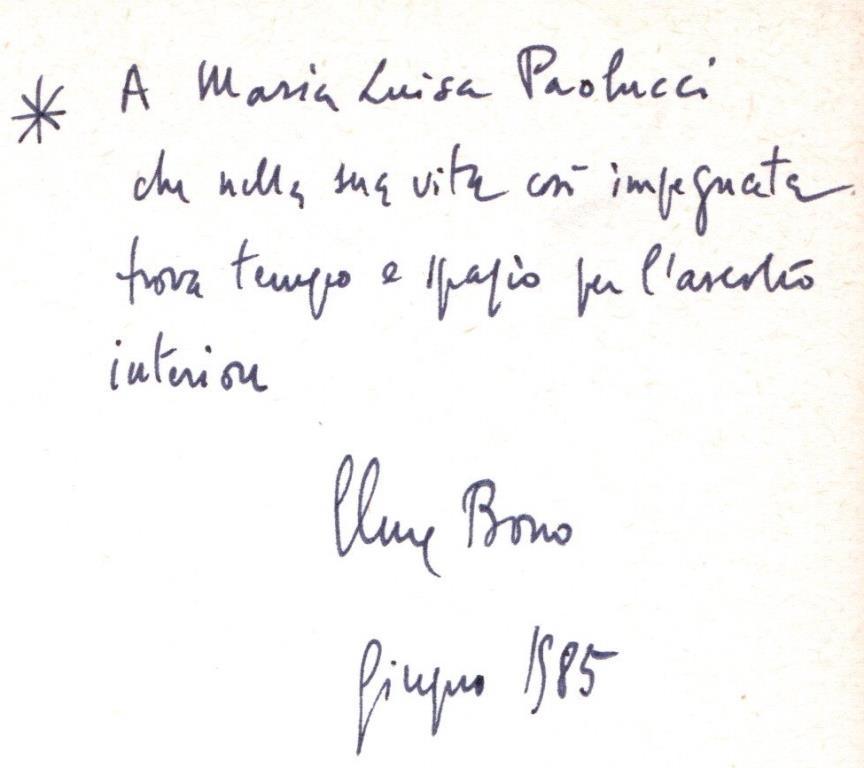 * A Maria Luisa Paolucci
che nella sua vita così impegnata
trova tempo e spazio per l'ascolto
interiore
Elena Bono
Giugno 1985